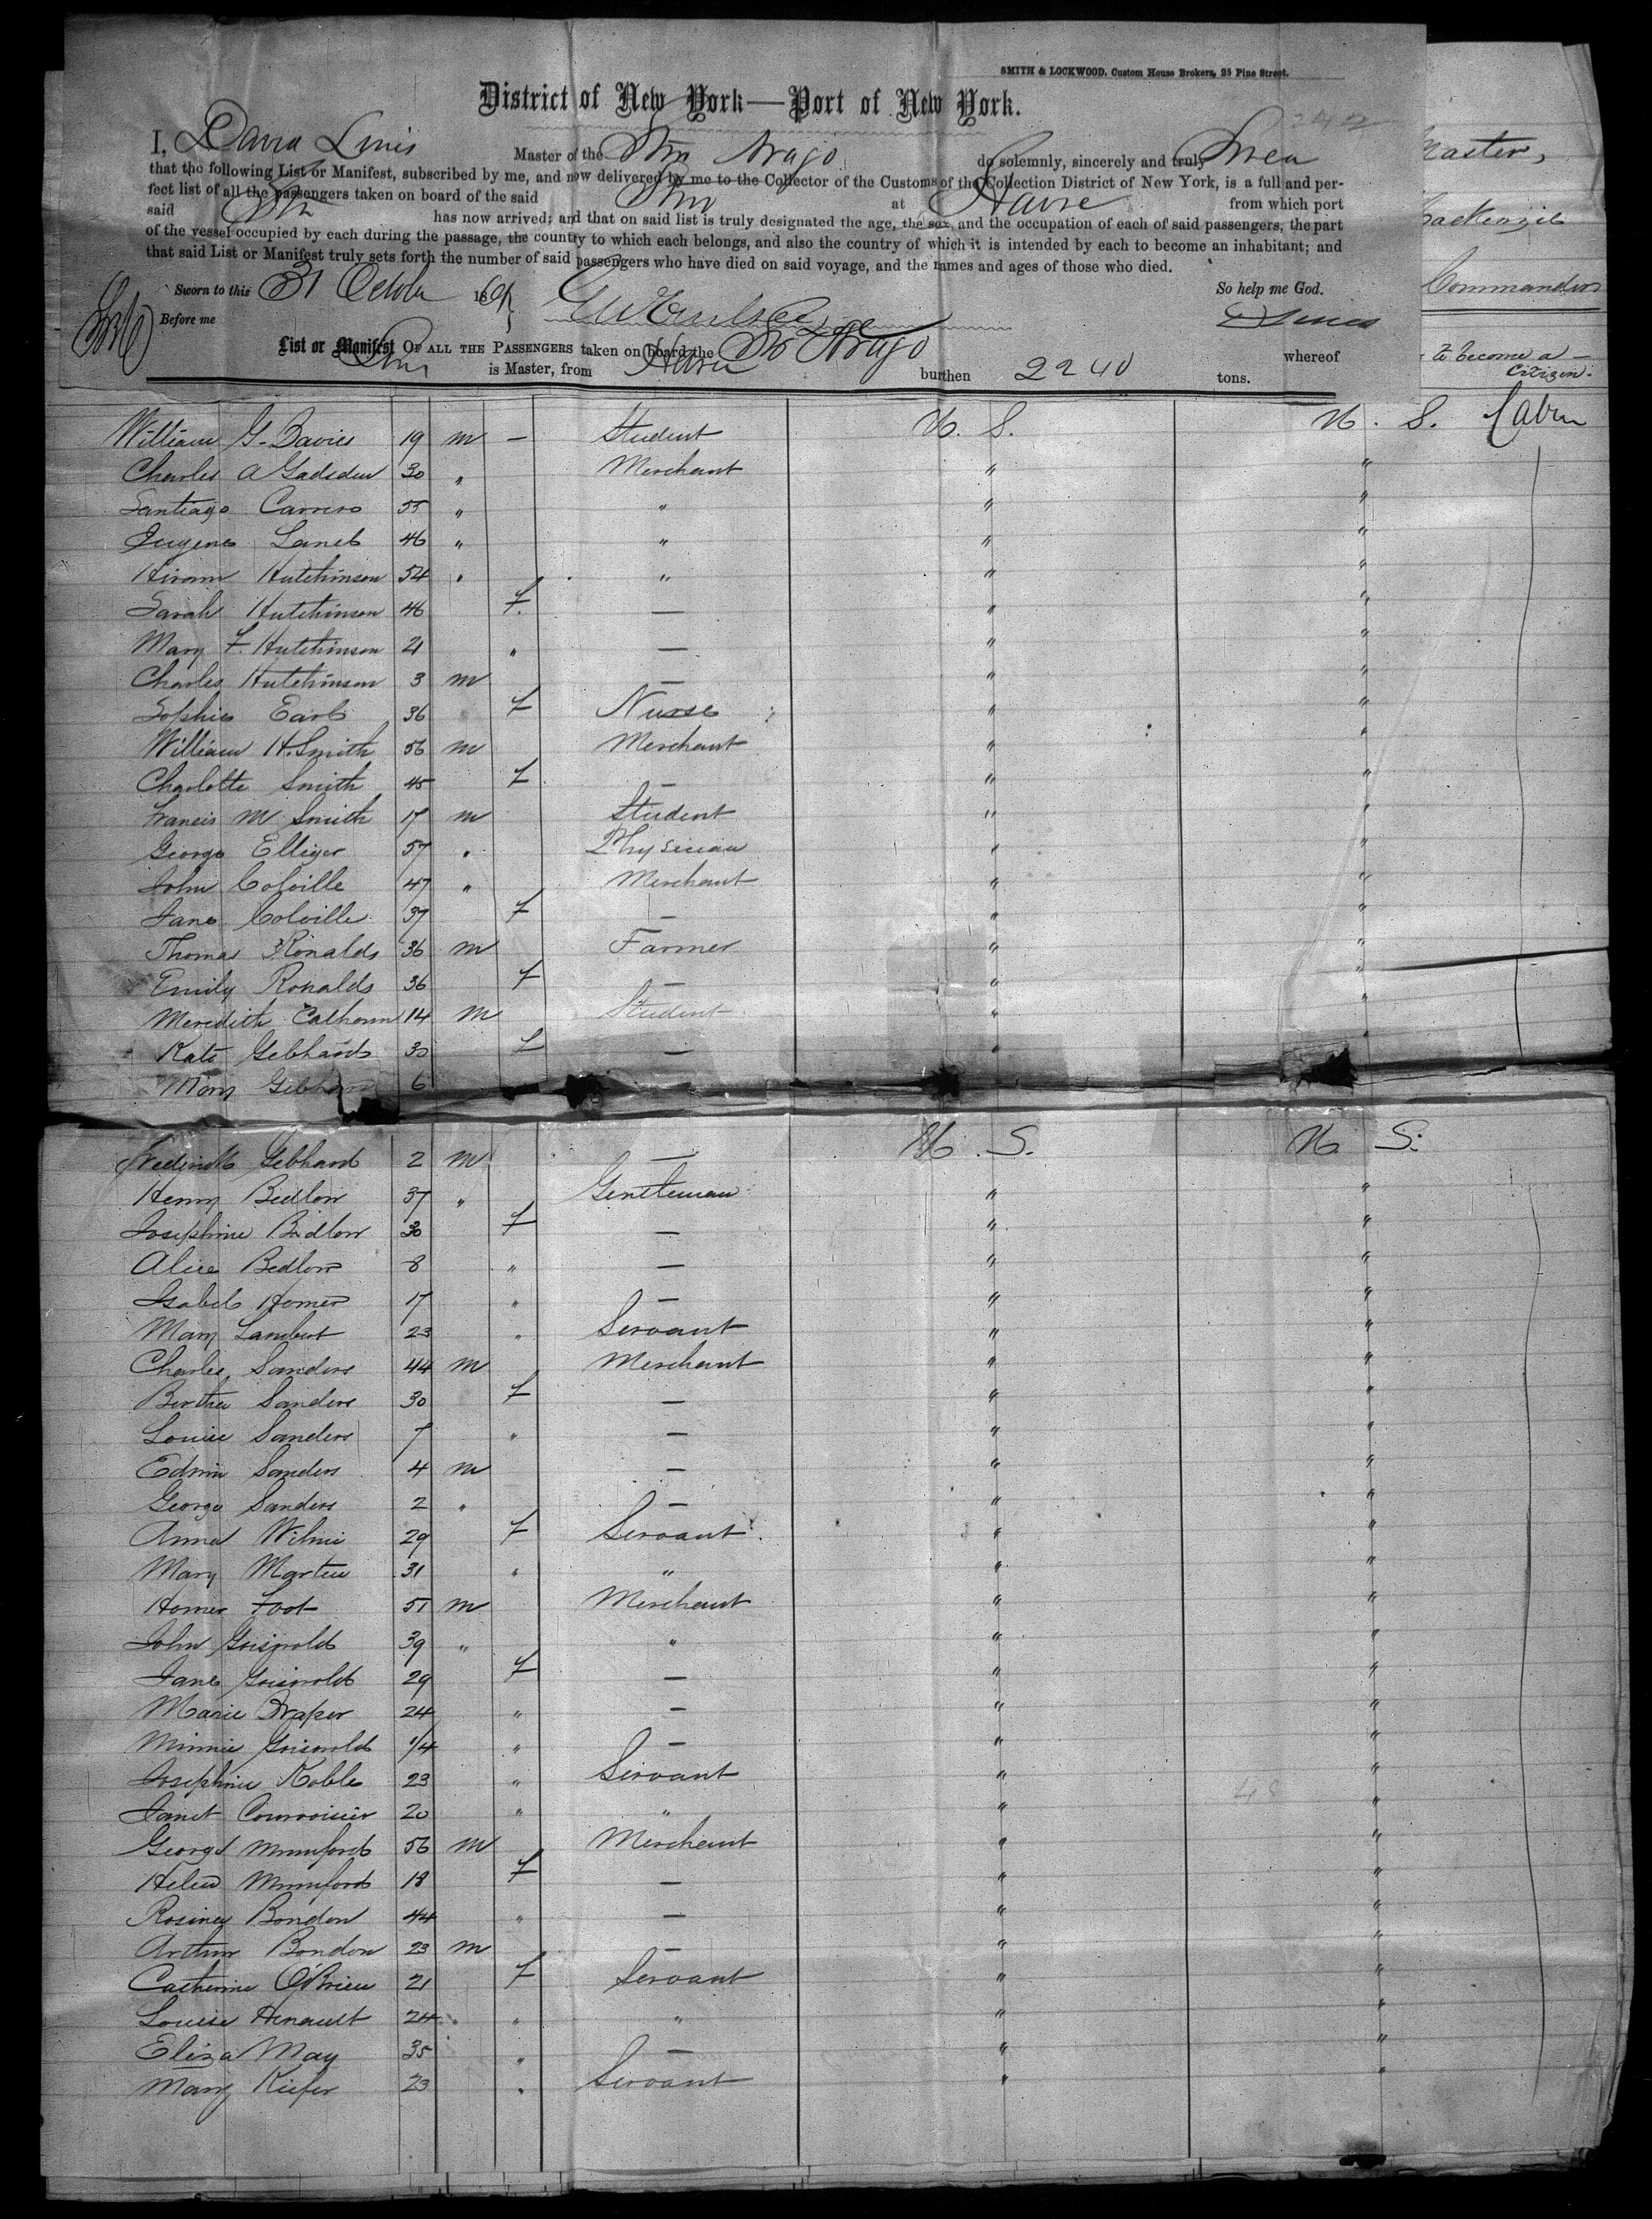 SMITH & LOCKWOOD, Custom House Brokers, 25 Pine Street.
District of New York—Port of New York.
I, David Lines Master of the Stm Arago do solemnly, sincerely and truly Swear
that the following List or Manifest, subscribed by me, and now delivered by me to the Collector of the Customs of the Collection District of New York, is a full and per-
fect list of all the passengers taken on board of the said Stm at Havre from which port
said Stm has now arrived; and that on said list is truly designated the age, the sex, and the occupation of each of said passengers, the part
of the vessel occupied by each during the passage, the country to which each belongs, and also the country of which it is intended by each to become an inhabitant; and
that said List or Manifest truly sets forth the number of said passengers who have died on said voyage, and the names and ages of those who died.
Sworn to this 31 October 18 So help me God.
Before me Lines
List or Manifest OF ALL THE PASSENGERS taken on board the Arago whereof
Lines is Master, from Havre burthen 2240 tons.
Master,
MacKenzie
Commander
to become a
Citizen.
William G. Davies 19 m — Student U. S. U. S. Cabin
Charles A Gadsden 30 " Merchant " "
Santiago Carrero 55 " " " "
Eugene 46 " " " "
Hiram Hutchinson 54 " " " "
Sarah Hutchinson 46 F. — " "
Mary F. Hutchinson 21 " — " "
Charles Hutchinson 3 m — " "
Sophie Earl 36 F Nurse " "
William H. Smith 56 m Merchant " "
Charlotte Smith 45 F — " "
Francis M Smith 17 m Student " "
George Elliger 57 " Physician " "
John Colville 47 " Merchant " "
Jane Colville 37 F — " "
Thomas Ronalds 36 m Farmer " "
Emily Ronalds 36 F — " "
Meredith Calhoun 14 m Student " "
Kate Gebhard 30 F — " "
Mary Gebhard 6
Gebhard 2 m — U. S. U. S.
Henry Bedlow 37 " Gentleman " "
Josephine Bedlow 30 F — " "
Alice Bedlow 8 " — " "
Isabel Homer 17 " — " "
Mary Lambert 23 " Servant " "
Charles Sanders 44 m Merchant " "
Bertha Sanders 30 F — " "
Louise Sanders 7 " — " "
Edwin Sanders 4 m — " "
George Sanders 2 " — " "
Anna 29 F Servant " "
Mary Martin 31 " " " "
Homer Foot 51 m Merchant " "
John Griswold 39 " " " "
Jane Griswold 29 F — " "
Marie Draper 24 " — " "
Minnie Griswold 1/4 " — " "
Josephine Koble 23 " Servant " "
Janet Courvoisier 20 " " " "
George Mumford 56 m Merchant " "
Helen Mumford 18 F — " "
Rosiney Bondon 44 " — " "
Arthur Bondon 23 m — " "
Catherine O'Brien 21 F Servant " "
Louise 24 " " " "
Eliza May 35 " — " "
Mary Kiefer 23 " Servant " "